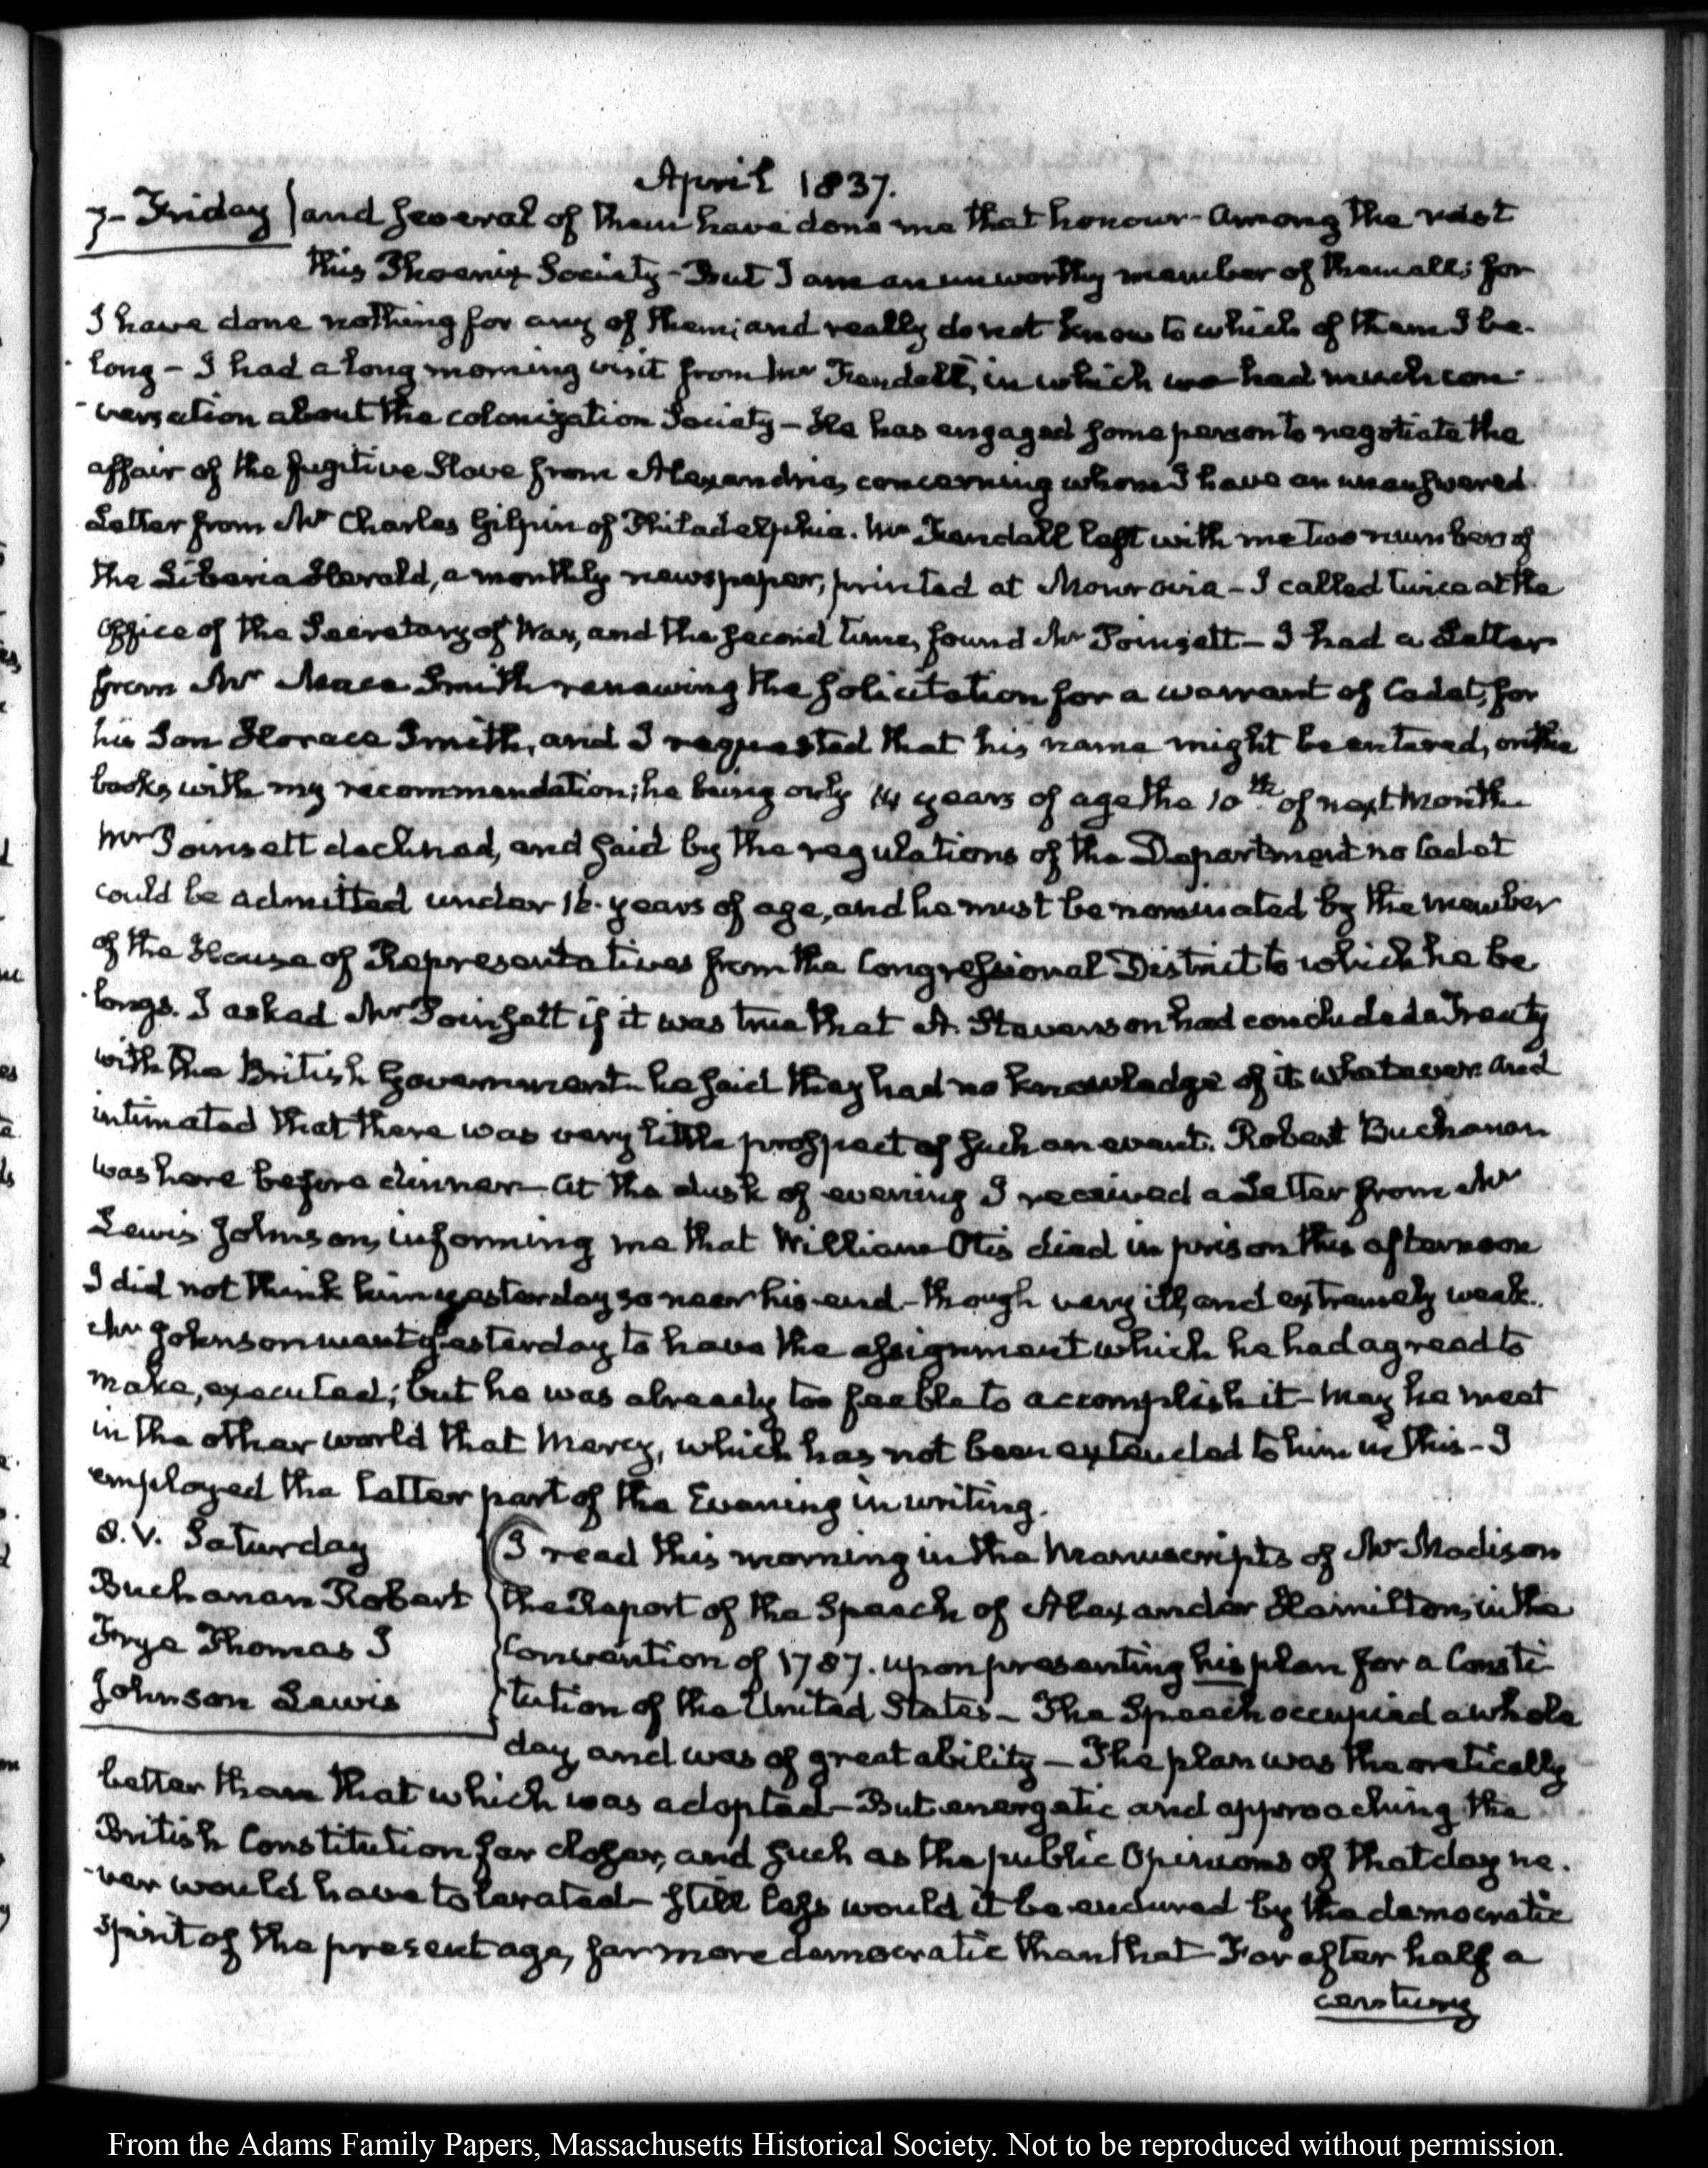 April 1837.
7- Friday and several of them have done me that honour - Among the rest
this Phoenix Society - But I am an unworthy member of them all; for
I have done nothing for any of them; and really do not know to which of them I be-
long - I had a long morning visit from Mr Trendell, in which we had much con-
versation about the colonization Society - He has engaged some person to negotiate the
affair of the fugitive Slave from Alexandria, concerning whom I have an unanswered
Letter from Mr Charles Gilpin of Philadelphia. Mr Trendall left with me two numbers of
the Liberia Herald, a monthly newspaper, printed at Monrovia - I called twice at the
Office of the Secretary of War, and the second time, found Mr Poinsett - I had a Letter
from Mr Mace Smith renewing the solicitation for a warrant of Cadet, for
his Son Horace Smith, and I requested that his name might be entered, on the
books, with my recommendation; he being only 14 years of age the 10th of next Month
Mr Poinsett declined, and said by the regulations of the Department no Cadet
could be admitted under 16. years of age, and he must be nominated by the member
of the House of Representatives from the Congressional District to which he be
longs. I asked Mr Poinsett if it was true that A. Stevenson had concluded a Treaty
with the British Government - he said they had no knowledge of it whatever. and
intimated that there was very little prospect of such an event. Robert Buchanan
was here before dinner - At the dusk of evening I received a Letter from Mr
Lewis Johnson, informing me that William Otis died in prison this afternoon
I did not think him yesterday so near his end - though very ill, and extremely weak.
Mr Johnson went yesterday to have the assignment which he had agreed to
make, executed; but he was already too feeble to accomplish it - May he meet
in the other world that Mercy, which has not been extended to him in this - I
employed the latter part of the Evening in writing.
8. V. Saturday
Buchanan Robert
Frye Thomas I
Johnson Lewis
I read this morning in the Manuscripts of Mr Madison
the Report of the Speech of Alexander Hamilton, in the
Convention of 1787. upon presenting his plan for a Consti-
tution of the United States - The Speech occupied a whole
day, and was of great ability - The plan was theoretically
better than that which was adopted - But energetic and approaching the
British Constitution far closer, and such as the public Opinions of that day ne-
ver would have tolerated - still less would it be endured by the democratic
spirit of the present age, far more democratic than that - For after half a
century
From the Adams Family Papers, Massachusetts Historical Society. Not to be reproduced without permission.